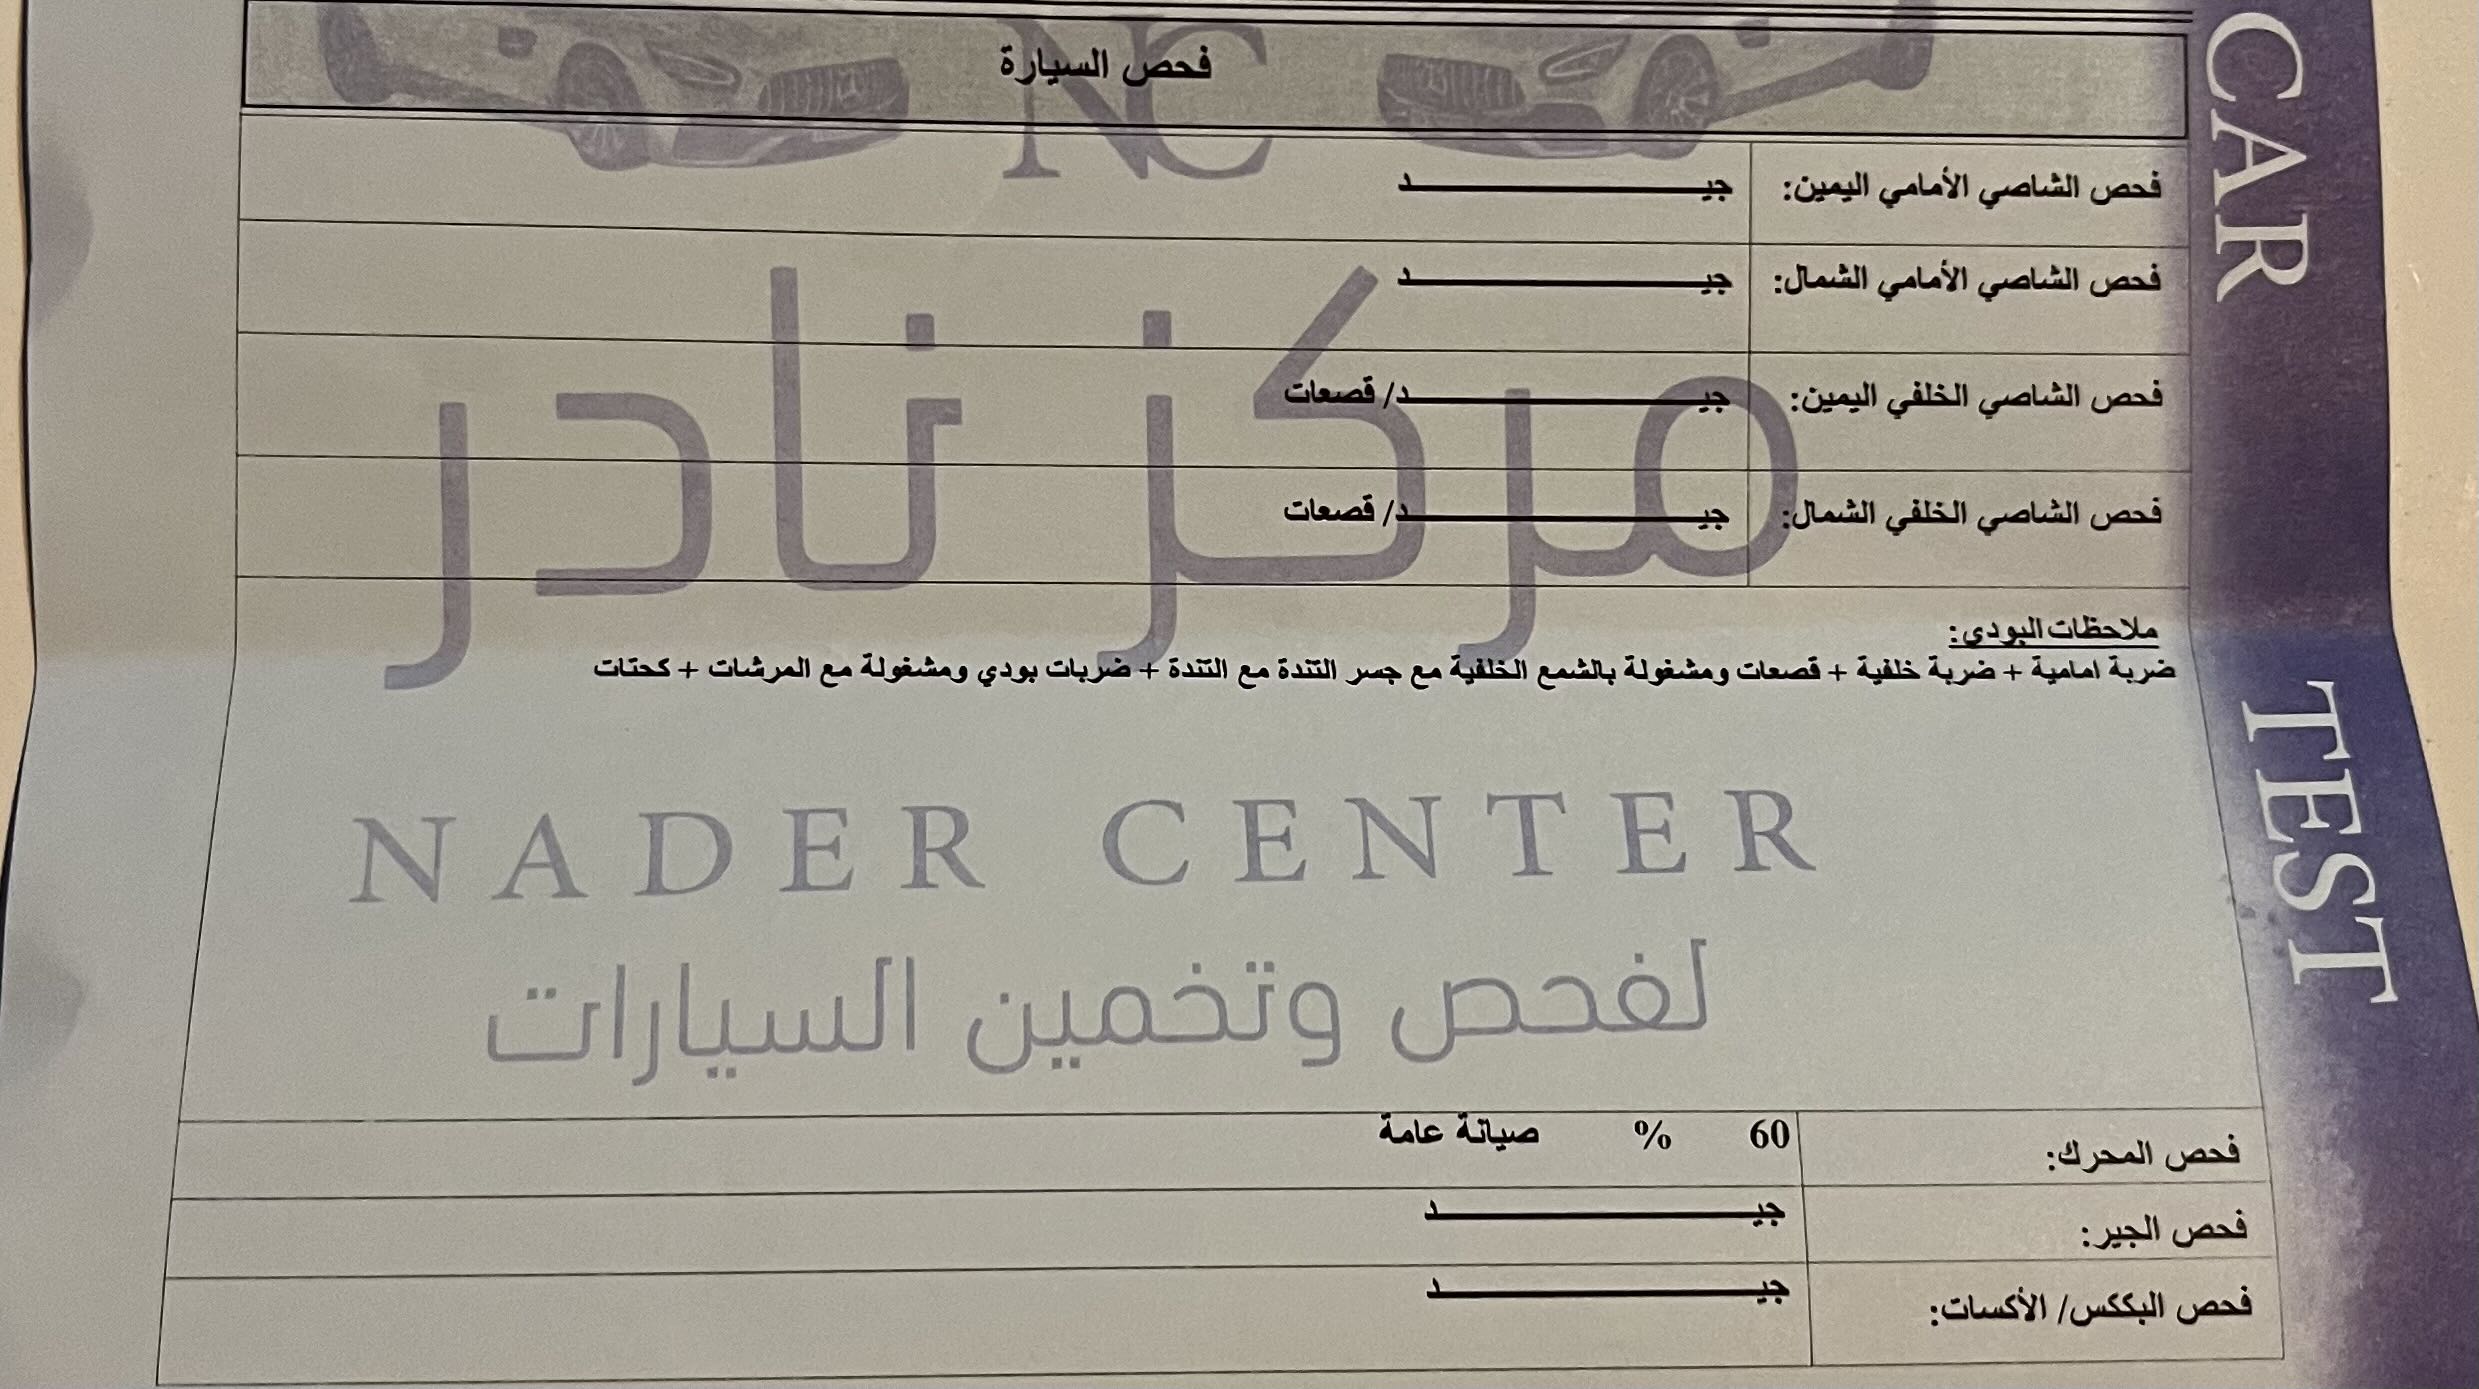 CAR TEST
NC
فحص السيارة
فحص الشاصي الأمامي اليمين: جيـــــــــــــــــــــد
فحص الشاصي الأمامي الشمال: جيـــــــــــــــــــــد
فحص الشاصي الخلفي اليمين: جيـــــــــــــــــــــد/ قصعات
فحص الشاصي الخلفي الشمال: جيـــــــــــــــــــــد/ قصعات
مركز نادر
ملاحظات البودي:
ضربة امامية + ضربة خلفية + قصعات ومشغولة بالشمع الخلفية مع جسر التندة مع التندة + ضربات بودي ومشغولة مع المرشات + كحتات
NADER CENTER
لفحص وتخمين السيارات
فحص المحرك: 60 % صيانة عامة
فحص الجير: جيـــــــــــــــــــــد
فحص البككس/ الأكسات: جيـــــــــــــــــــــد